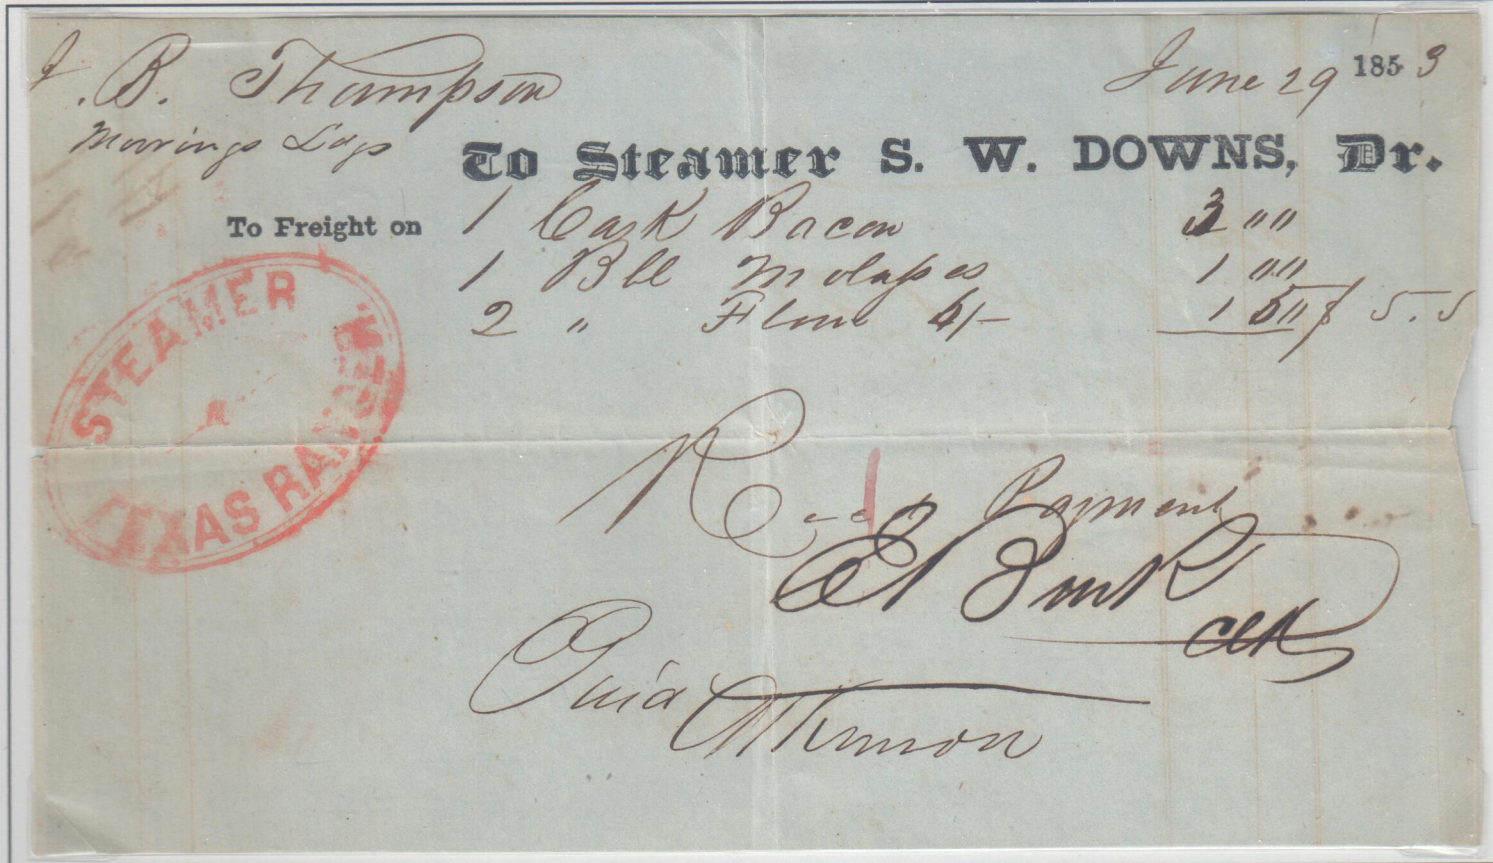 J. B. Thompson
June 29 1853
To Steamer S. W. DOWNS, Dr.
To Freight on 1 Cask Bacon 3 ""
1 Bbl Molasses 1 ""
2 " Flour 1 5" $ 5.5
STEAMER
TEXAS RANGER
Recd Payment
Clk
Paid